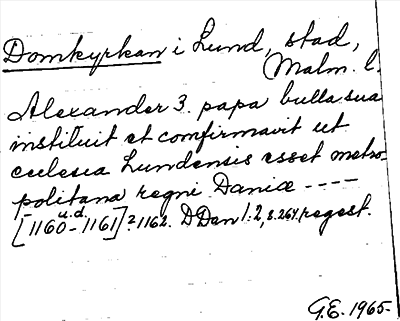 Domkyrkan i Lund, stad,
Malm. l.
Alexander 3. papa bulla sua
instituit et comfirmavit ut
ecclesia Lundensis esset metro-
politana regni Daniæ ----
u.d.
[1160-1161]? 1162. DDan 1:2, s. 264. regest.
G.E. 1965-